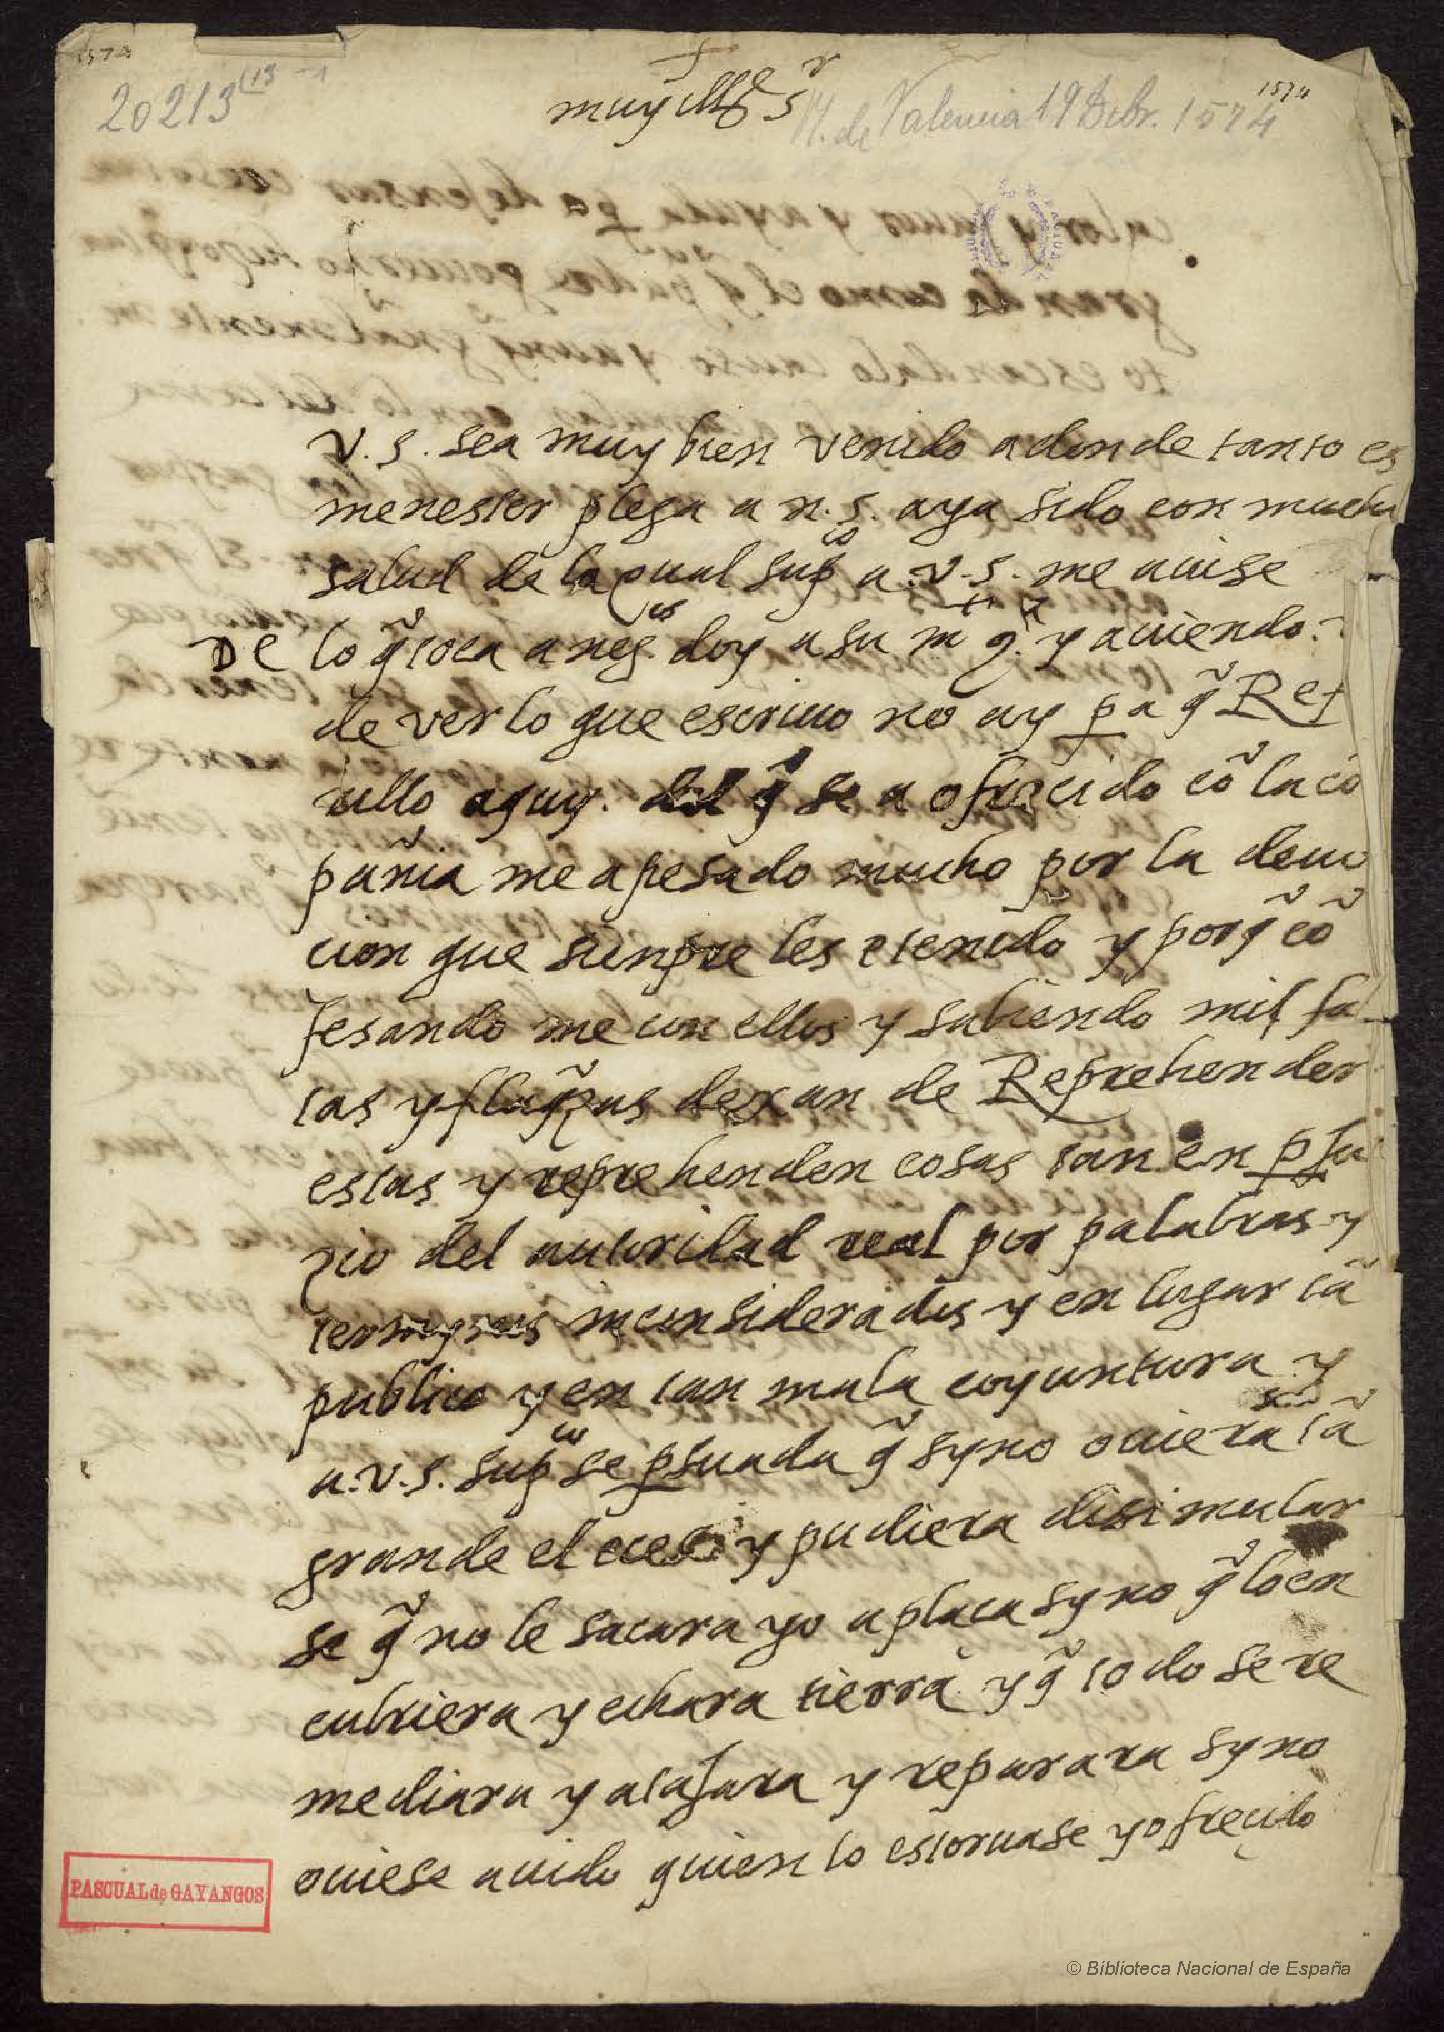 1574
20213(13-1
muy Illᵉ sʳ
M. de Valencia 19 Debr. 1574
1574
v. s. sea muy bien venido adonde tanto es
menester plega a n. s. aya sido con mucha
salud de la qual supᶜᵒ a v. s. me auise
De lo q̃ toca a negᵒˢ doy a su mᵗ qᵗᵃ y auiendo
de ver lo que escriuo no ay pa q̃ Ref
rillo aquy. del q̃ se a ofrecido cõ la cõ
pañia me a pesado mucho por la deuo
cion que sienpre les e tenido y porq̃ cõ
fesando me con ellos y sabiendo mis fal
tas y flaq̃zas dexan de Reprehender
estas y reprehenden cosas tan en pjui
zio del autoridad real por palabras y
terminos inconsiderados y en lugar tã
publico y en tan mala coyuntura y
a. v. s. supᶜᵒ se psuada q̃ sy no ouiera sido tã
grande el eceso y pudiera disimular
se q̃ no le sacara yo a plaça syno q̃ lo en
cubriera y echara tierra y q̃ todo se re
mediara y atajara y reparara syno
ouiese auido quien lo estoruase y ofreçido
PASCUAL de GAYANGOS
© Biblioteca Nacional de España